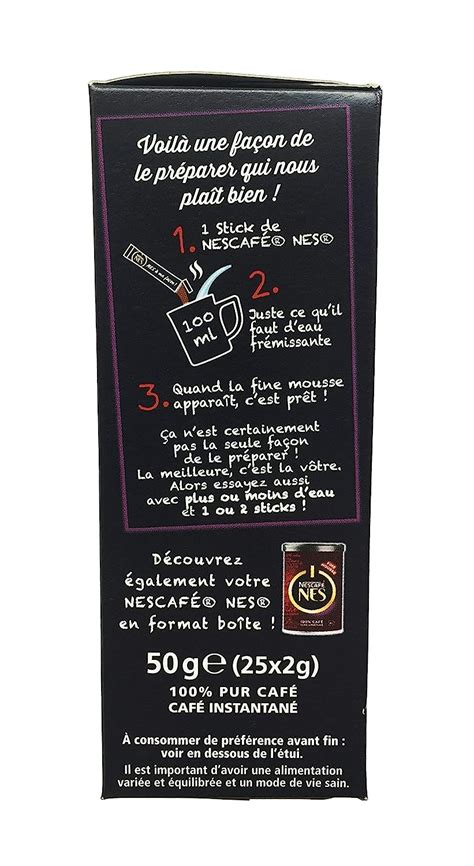 Voilà une façon de
le préparer qui nous
plaît bien !
1. 1 Stick de
NESCAFÉ® NES®
100
ml
2.
Juste ce qu'il
faut d'eau
frémissante
3. Quand la fine mousse
apparaît, c'est prêt !
Ça n'est certainement
pas la seule façon
de le préparer !
La meilleure, c'est la vôtre.
Alors essayez aussi
avec plus ou moins d'eau
et 1 ou 2 sticks !
Découvrez
également votre
NESCAFÉ® NES®
en format boîte !
NESCAFÉ
NES
100% CAFÉ
50 g e (25x2g)
100% PUR CAFÉ
CAFÉ INSTANTANÉ
À consommer de préférence avant fin :
voir en dessous de l'étui.
Il est important d'avoir une alimentation
variée et équilibrée et un mode de vie sain.